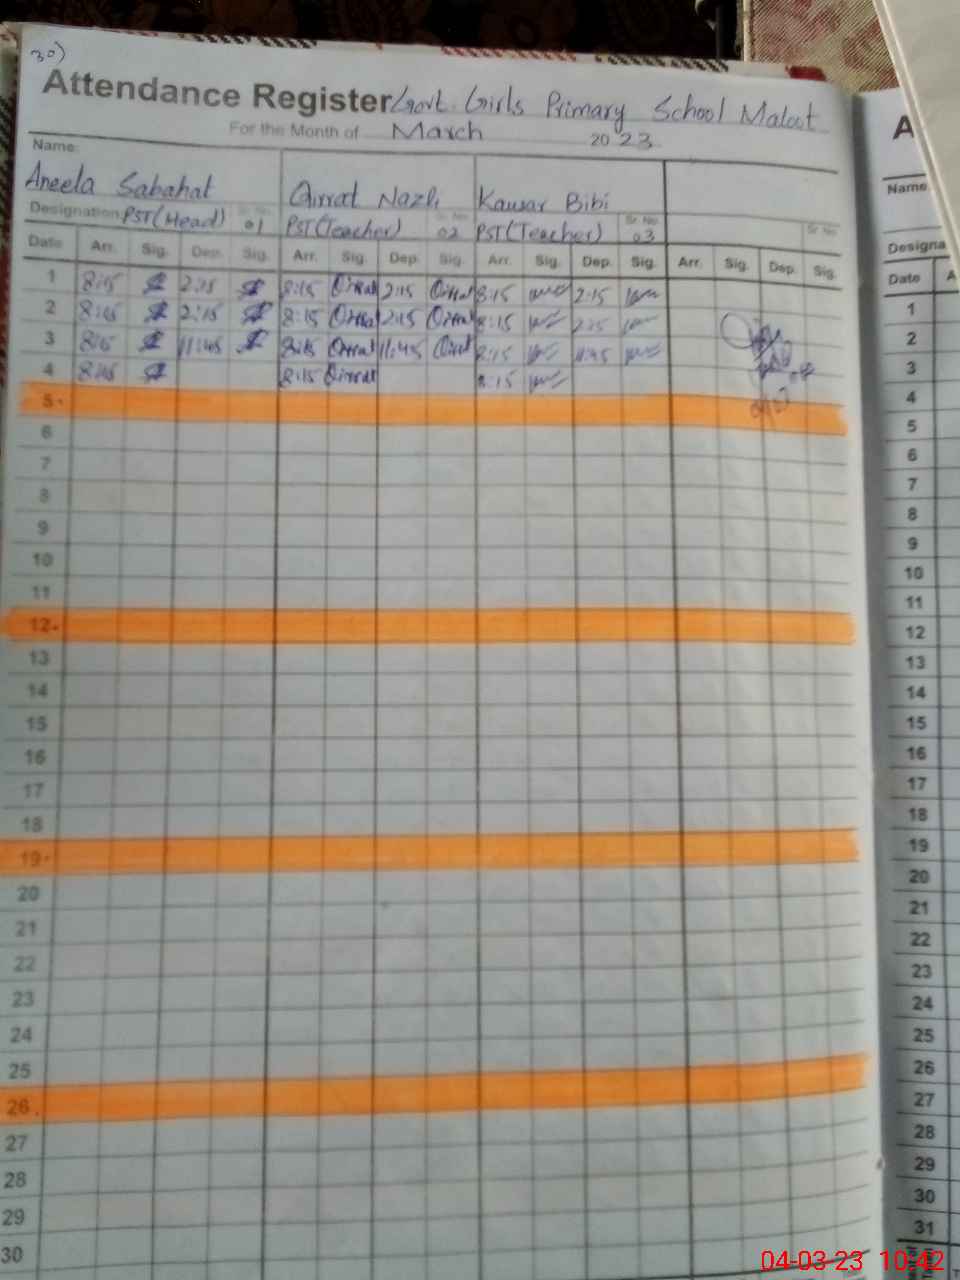 30)
Attendance Register Govt. Girls Primary School Maloot
For the Month of March 2023
Name:
Aneela Sabahat Qirrat Nazli Kausar Bibi
Designation PST(Head) Sr. No. 01 PST(Teacher) Sr. No. 02 PST(Teacher) Sr. No. 03 Sr. No.
Date Arr. Sig. Dep. Sig. Arr. Sig. Dep. Sig. Arr. Sig. Dep. Sig. Arr. Sig. Dep. Sig.
1 8:15 2:15 8:15 Qirrat 2:15 Qirrat 8:15 2:15
2 8:15 2:15 8:15 Qirrat 2:15 Qirrat 8:15 2:15
3 8:15 11:45 8:15 Qirrat 11:45 Qirrat 8:15 11:45
4 8:15 8:15 Qirrat 8:15
5
6
7
8
9
10
11
12
13
14
15
16
17
18
19
20
21
22
23
24
25
26
27
28
29
30
A
Name
Designa
Date A
1
2
3
4
5
6
7
8
9
10
11
12
13
14
15
16
17
18
19
20
21
22
23
24
25
26
27
28
29
30
31
04-03-23 10:42